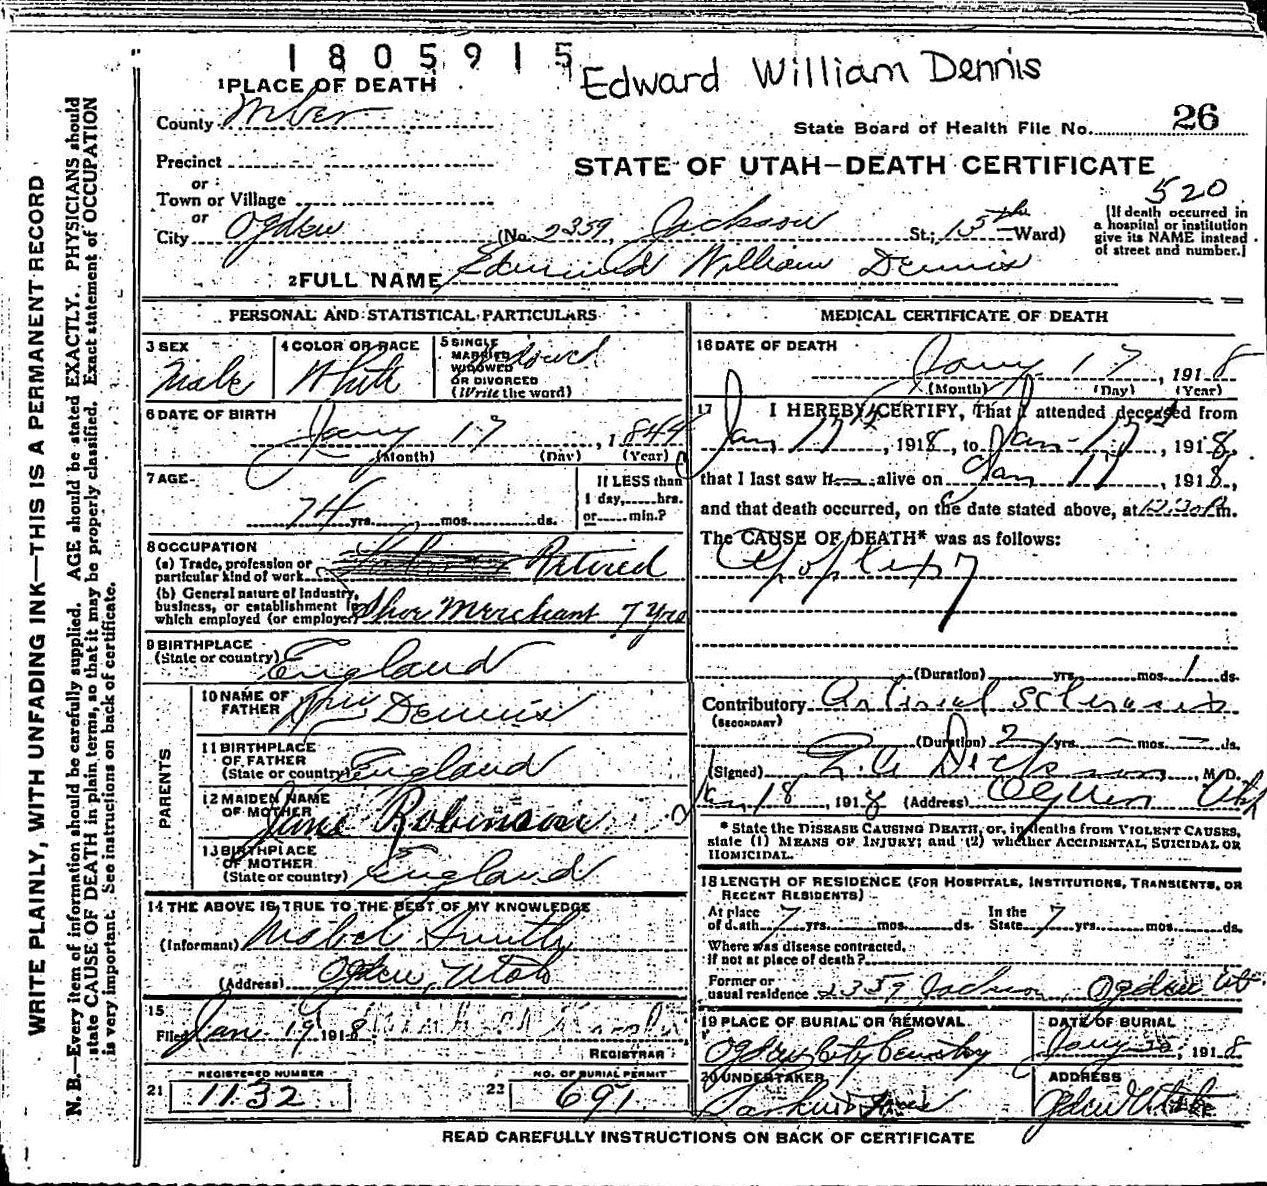 1805915
Edward William Dennis
1 PLACE OF DEATH
County Weber
State Board of Health File No. 26
Precinct
STATE OF UTAH—DEATH CERTIFICATE
or
Town or Village
520
or
City Ogden (No. 2359 Jackson St.; 15th Ward)
[If death occurred in
a hospital or institution
give its NAME instead
of street and number.]
2 FULL NAME Edmund William Dennis
PERSONAL AND STATISTICAL PARTICULARS
3 SEX
Male
4 COLOR OR RACE
White
5 SINGLE
MARRIED
WIDOWED
OR DIVORCED
(Write the word)
Widowed
6 DATE OF BIRTH
Jany 17, 1844
(Month) (Day) (Year)
7 AGE
74 yrs. mos. ds.
If LESS than
1 day, hrs.
or min.?
8 OCCUPATION
(a) Trade, profession or
particular kind of work Retired
(b) General nature of Industry,
business, or establishment in
which employed (or employer) Shoe Merchant 7 yrs
9 BIRTHPLACE
(State or country) England
PARENTS
10 NAME OF
FATHER Wm Dennis
11 BIRTHPLACE
OF FATHER
(State or country) England
12 MAIDEN NAME
OF MOTHER Jane Robinson
13 BIRTHPLACE
OF MOTHER
(State or country) England
14 THE ABOVE IS TRUE TO THE BEST OF MY KNOWLEDGE
(Informant) Mabel Smith
(Address) Ogden, Utah
15
Filed Jan 19 1918
REGISTRAR
21 REGISTERED NUMBER
1132
22 NO. OF BURIAL PERMIT
691
MEDICAL CERTIFICATE OF DEATH
16 DATE OF DEATH
Jany 17, 1918
(Month) (Day) (Year)
17 I HEREBY CERTIFY, That I attended deceased from
Jan 17th, 1918, to Jan 17, 1918,
that I last saw h alive on Jan 17, 1918,
and that death occurred, on the date stated above, at 12:20 Pm.
The CAUSE OF DEATH* was as follows:
Apoplexy
(Duration) yrs. mos. 1 ds.
Contributory Arterial Sclerosis
(SECONDARY)
(Duration) 2 yrs. — mos. — ds.
(Signed) Dickson, M.D.
Jan 18, 1918 (Address) Ogden Utah
* State the DISEASE CAUSING DEATH, or, in deaths from VIOLENT CAUSES,
state (1) MEANS OF INJURY; and (2) whether ACCIDENTAL, SUICIDAL OR
HOMICIDAL.
18 LENGTH OF RESIDENCE (FOR HOSPITALS, INSTITUTIONS, TRANSIENTS, OR
RECENT RESIDENTS)
At place
of death 7 yrs. mos. ds.
In the
State 7 yrs. mos. ds.
Where was disease contracted,
if not at place of death?
Former or
usual residence 2359 Jackson, Ogden Ut.
19 PLACE OF BURIAL OR REMOVAL
Ogden City Cemetery
DATE OF BURIAL
Jany 20, 1918
20 UNDERTAKER
ADDRESS
Ogden Utah
READ CAREFULLY INSTRUCTIONS ON BACK OF CERTIFICATE
WRITE PLAINLY, WITH UNFADING INK—THIS IS A PERMANENT RECORD
N. B.—Every item of information should be carefully supplied. AGE should be stated EXACTLY. PHYSICIANS should
state CAUSE OF DEATH in plain terms, so that it may be properly classified. Exact statement of OCCUPATION
is very important. See instructions on back of certificate.